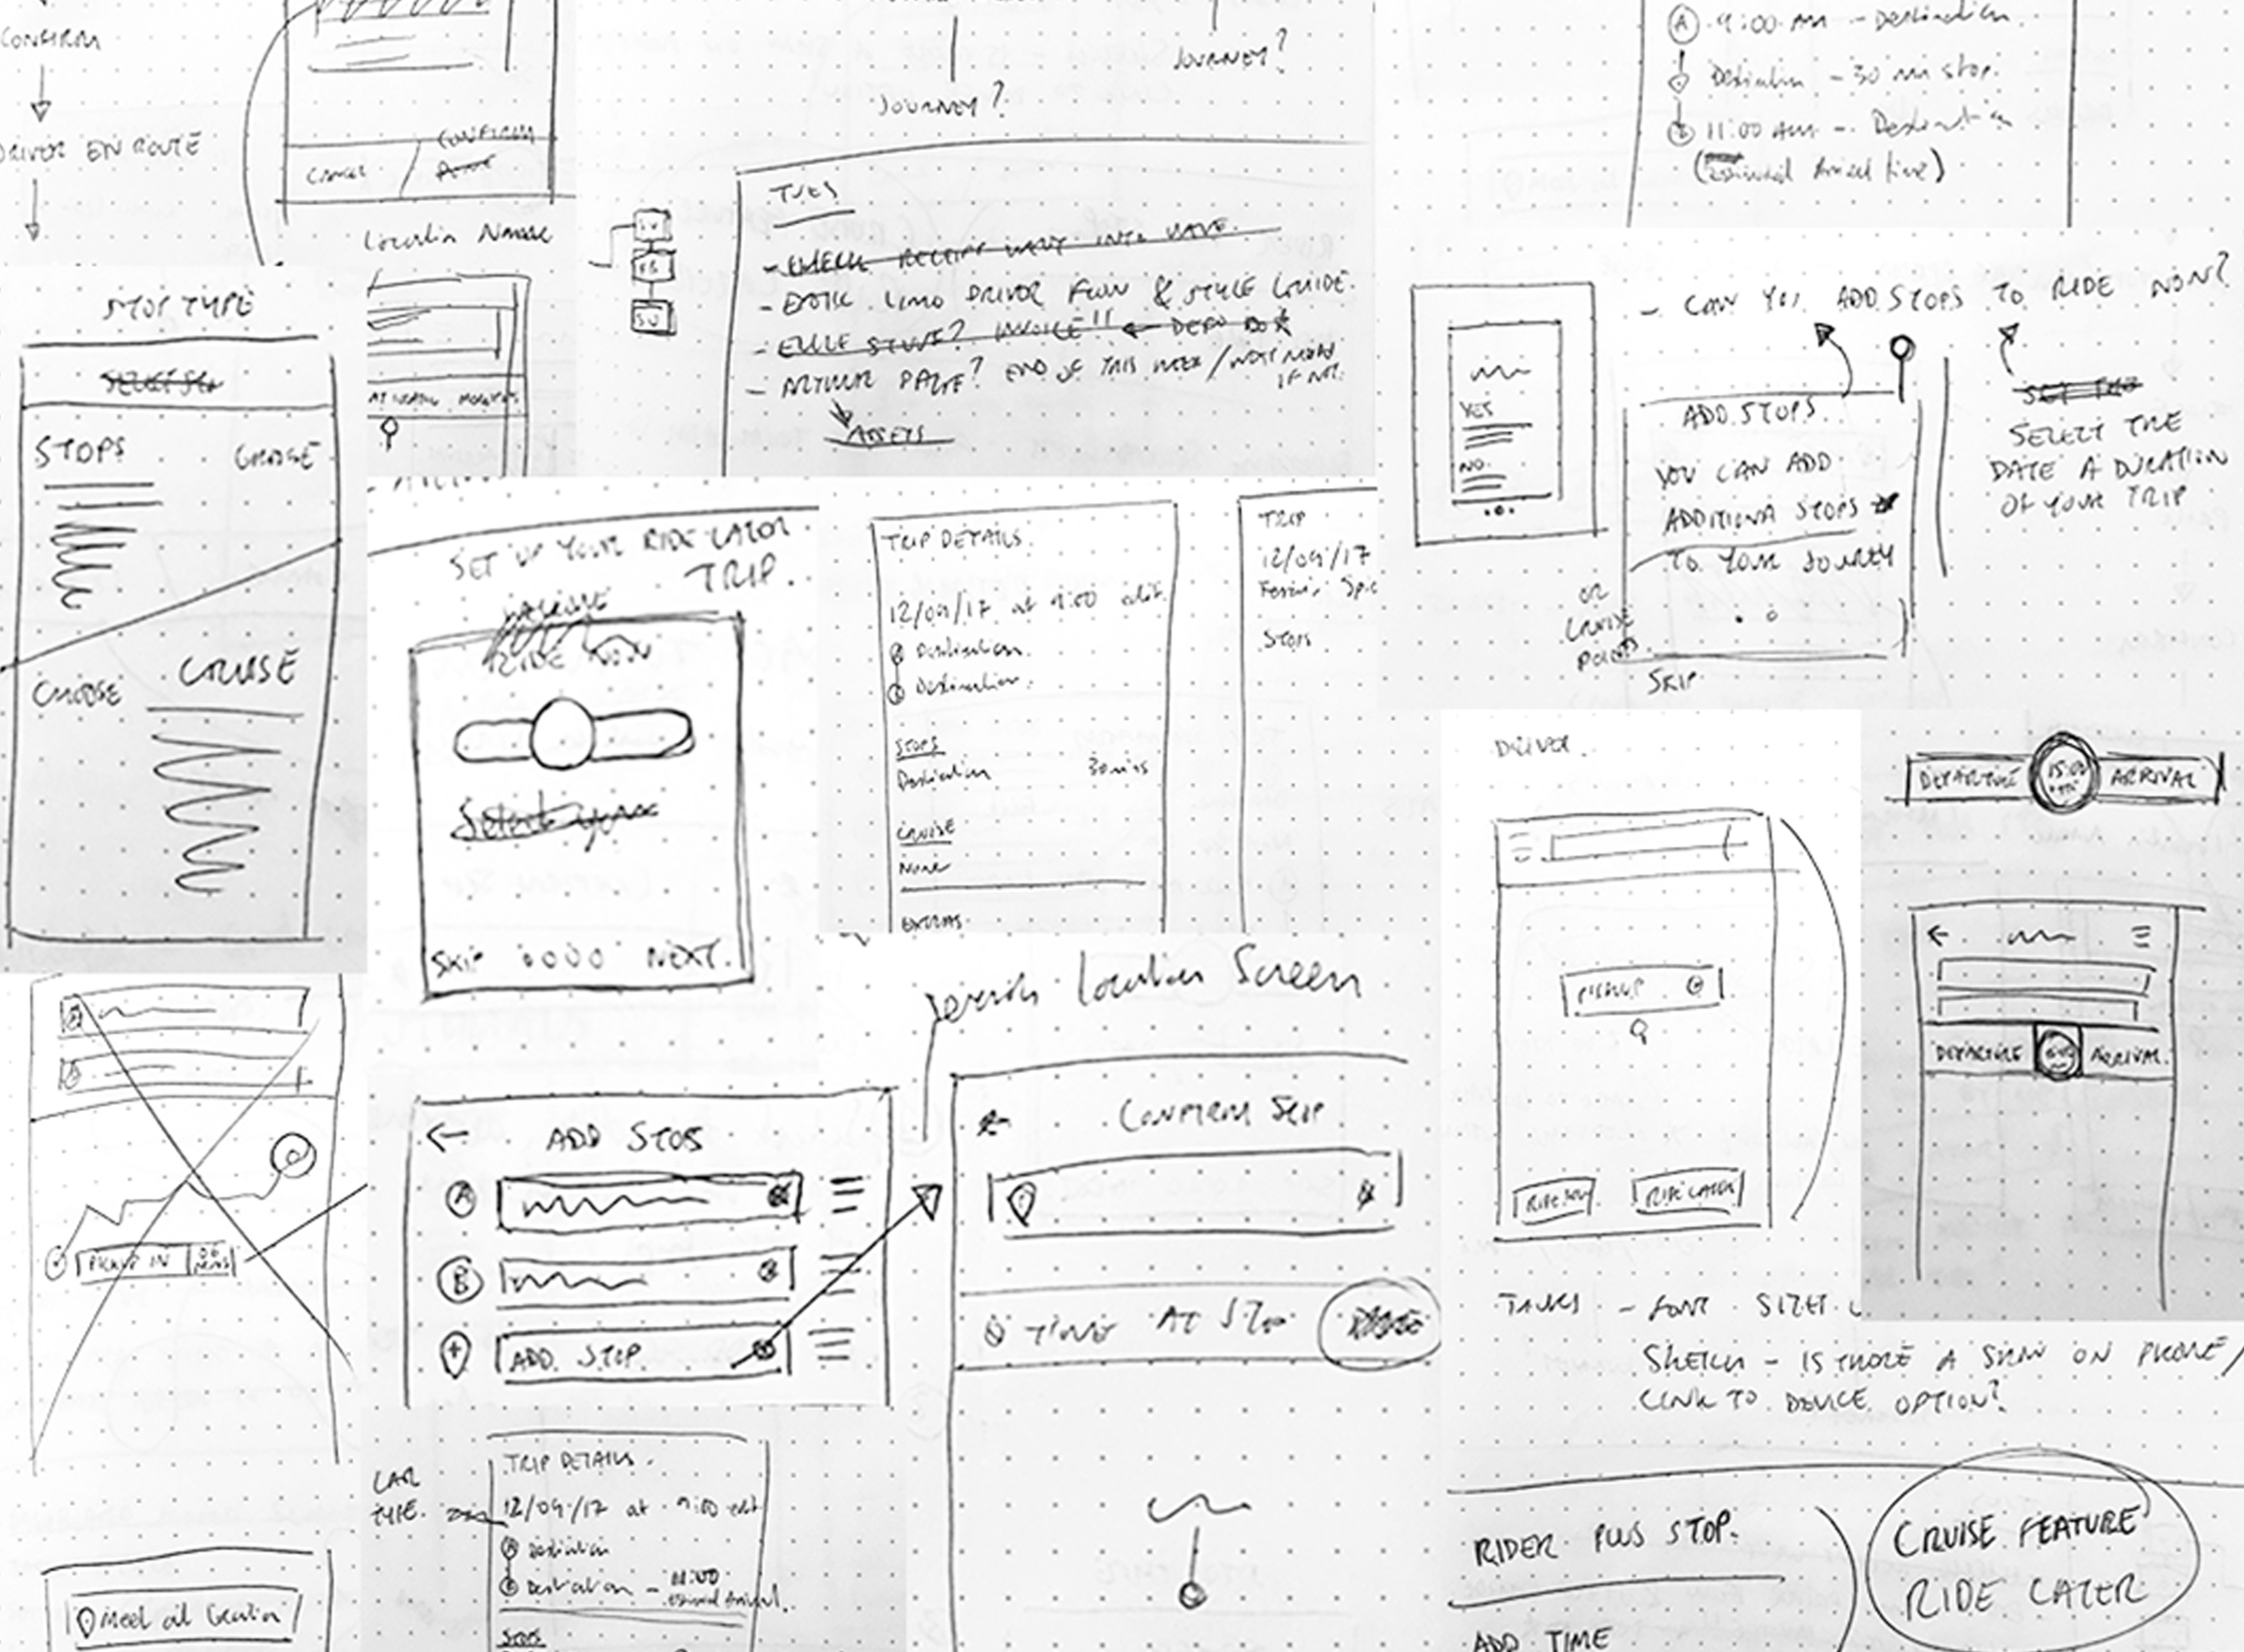 CONFIRM
DRIVER EN ROUTE
CANCEL
CONFIRM
Location Name
JOURNEY?
JOURNEY?
TUES
- EXOTIC LIMO DRIVER FLOW & STYLE GUIDE.
INVOICE!! ← DEPO BOX
END OF THIS WEEK / NEXT
IF NOT.
ASSETS
A 9:00 AM - Destination
Destination - 30 min stop.
11:00 AM - Destination
(Estimated Arrival time)
- CAN YOU ADD STOPS TO RIDE NOW?
YES
NO.
ADD STOPS.
YOU CAN ADD
ADDITIONAL STOPS
TO YOUR JOURNEY
SKIP
OR
CRUISE
POINTS
SELECT THE
DATE & DURATION
OF YOUR TRIP
STOP TYPE
STOPS
CHOOSE
CHOOSE
CRUISE
SET UP YOUR RIDE LATER
TRIP.
RIDE NOW
SKIP
NEXT.
TRIP DETAILS.
12/09/17 at 9:00 edit
Destination.
Destination.
STOPS
Destination 30mins
CRUISE
None
EXTRAS
TRIP
12/09/17
STOPS
DRIVER
PICKUP
RIDE NOW
RIDE LATER
DEPARTURE 15:00 ARRIVAL
DEPARTURE ARRIVAL.
PICKUP IN 06 MINS
Search Location Screen
← ADD STOPS
A
B
ADD STOP
← CONFIRM STOP
TIME AT STOP
TASKS - FONT SIZES
SKETCH - IS THERE A SHAW ON PHONE/
LINK TO DEVICE OPTION?
CAR
TYPE.
TRIP DETAILS.
12/09/17 at 9:00 edit
Destination
Destination - 11:00
estimated Arrival.
STOPS
Meet at location
RIDER PLUS STOP.
ADD TIME
CRUISE FEATURE
RIDE LATER